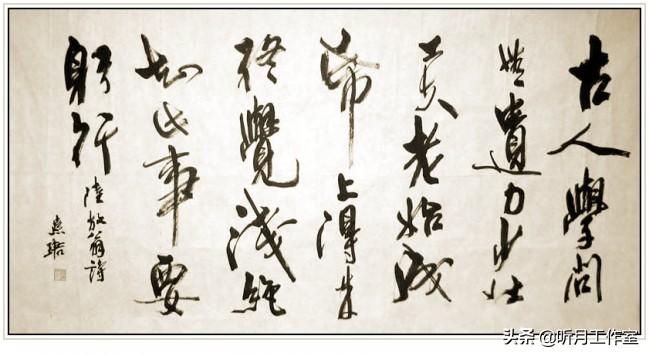 古人學問
無遺力少壮
工夫老始成
帋上得来
終覺淺絕
知此事要
躬行
陸放翁詩
头条@听月工作室